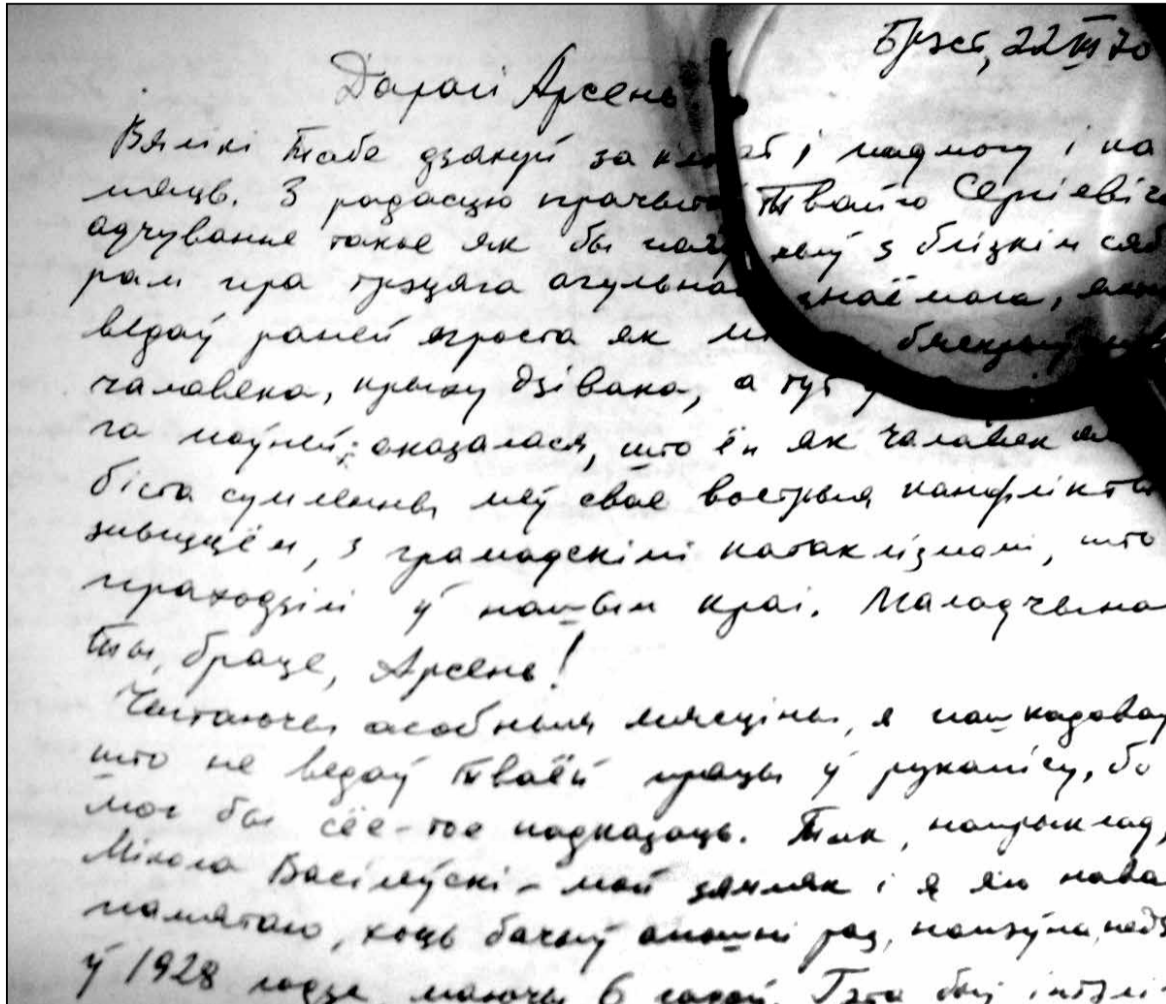 Брэст, 22 III 70
Дарагі Арсень
Вялікі Табе дзякуй за клопат, і падмогу і па
мяць. З радасцю прачытаў Твайго Сергіевіча
адчуванне такое як бы з блізкім сяб
рам пра трэцяга агульнага знаёмага,
ведаў раней проста як
чалавека, крыху дзівака, а тут
га поўней: аказалася, што ён як чалавек
біста сумленны меў свае вострыя канфлікты
жыццём, з грамадскімі катаклізмамі, што
праходзілі ў нашым краі. Маладчына
Ты, браце, Арсень!
Чытаючы асобныя мясціны, я пашкадаваў
што не ведаў Тваёй працы ў рукапісу, бо
мог бы сёе-тое падказаць. Так, напрыклад,
Мікола Васілеўскі - мой зямляк і я яго нава
памятаю, хоць бачыў апошні раз,
ў 1928 годзе, маючы 6 гадоў. Гэта быў